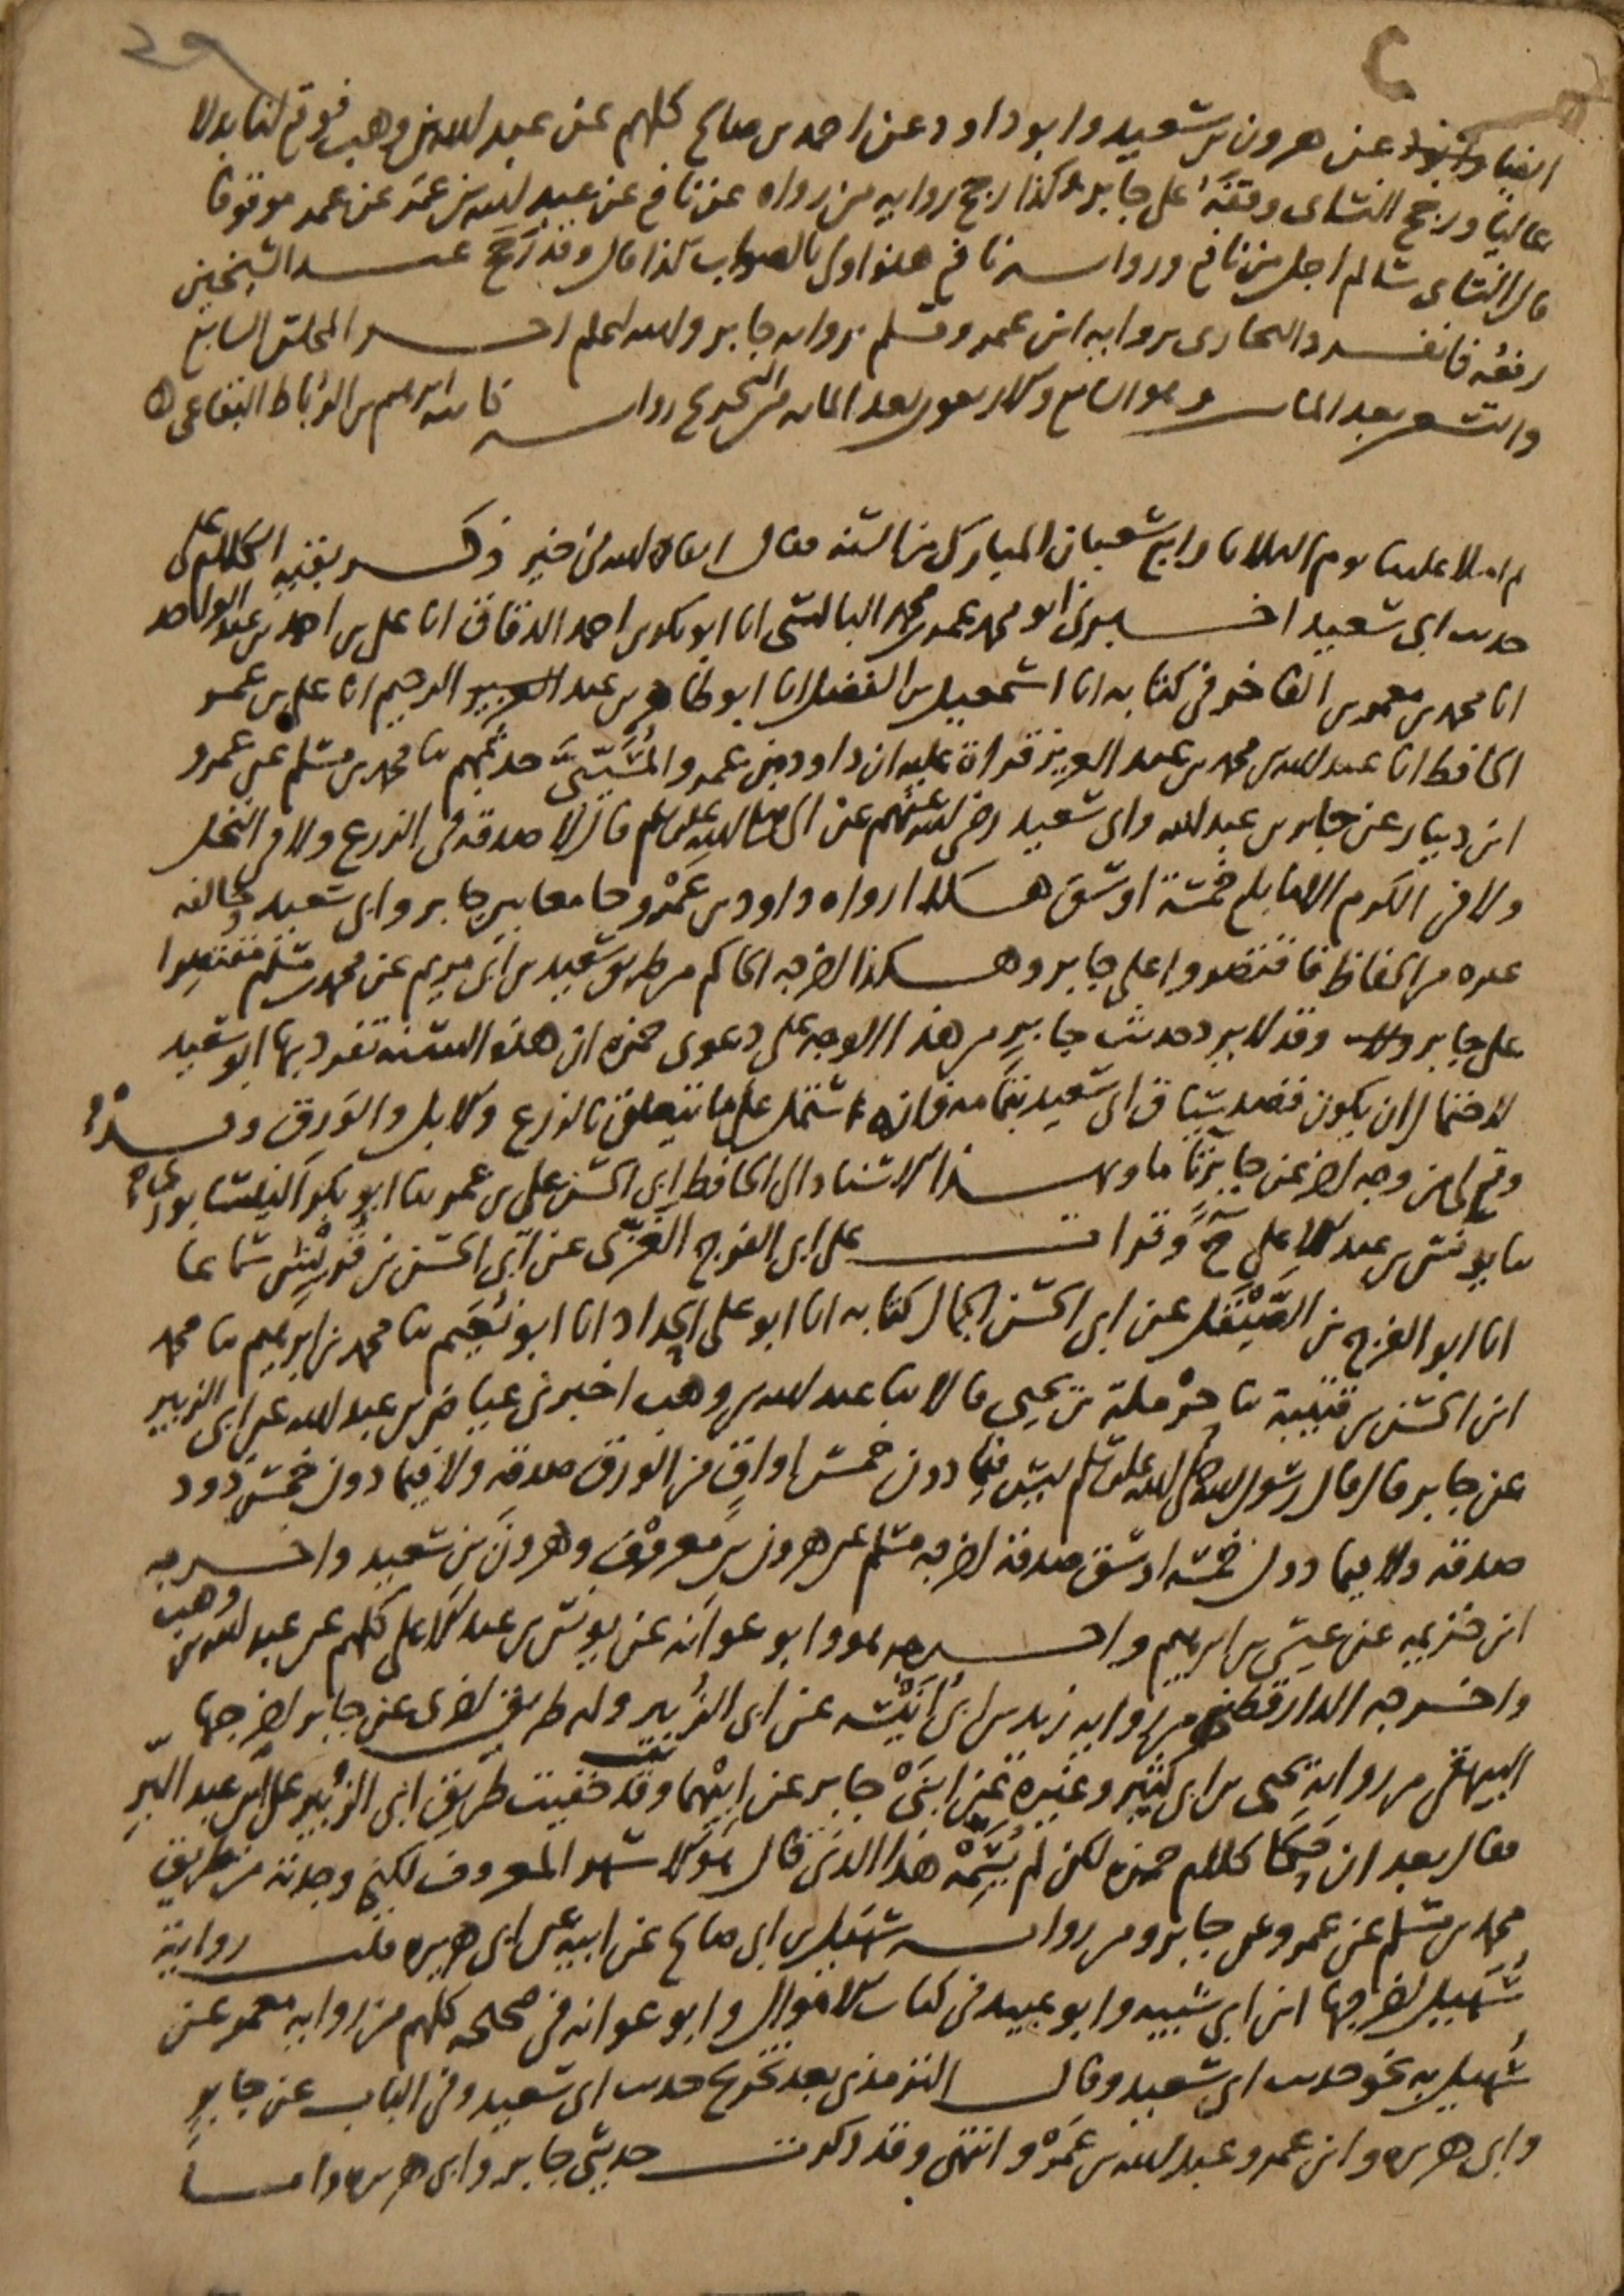 ايضا عن هرون بن سعيد وابو داود عن احمد بن صالح كلهم عن عبد الله بن وهب فوقع لنا بدلا
عاليا ورجح النسائي وقفه على جابر وكذا رجح رواية من رواه عن نافع عن عبد الله بن عمر عن عمر موقوفا
قال النسائي سالم اجل من نافع ورواية نافع هذه اولى بالصواب كذا قال وقد رجح عند الشيخين
رفعه فانفرد البخاري برواية ابن عمر ومسلم برواية جابر والله اعلم اخر المجلس السابع
والتسعين بعد المائة وهو السابع والاربعون بعد المائة من التخريج رواية كاتبه ابرهيم بن الرباط البقاعي
ثم املا علينا يوم الثلاثا رابع شعبان المبارك من السنة فقال ابقاه الله في خير ذكر بقية الكلام على
حديث ابي سعيد اخبرني ابو محمد عمر بن محمد البالسي انا ابو بكر بن احمد الدقاق انا علي بن احمد بن عبد الواحد
انا محمد بن معمر بن الفاخر في كتابه انا اسمعيل بن الفضل انا ابو طاهر بن عبد الرحيم انا علي بن عمر
الحافظ انا عبد الله بن محمد بن عبد العزيز قراة عليه ان داود بن عمرو المسيبي حدثهم ثنا محمد بن مسلم عن عمرو
ابن دينار عن جابر بن عبد الله وابي سعيد رضي الله عنهم عن النبي صلى الله عليه وسلم قال لا صدقة في الزرع ولا في النخل
ولا في الكرم الا ما بلغ خمسة اوسق هكذا رواه داود بن عمرو جامعا بين جابر وابي سعيد وخالفه
غيره من الحفاظ فاقتصروا على جابر وهكذا اخرجه الحاكم من طريق سعيد بن ابي مريم عن محمد بن مسلم مقتصرا
على جابر وقد لا يرد حديث جابر من هذا الوجه على دعوى حمزة ان هذه السنة تفرد بها ابو سعيد
لاحتمال ان يكون قصد سياق ابي سعيد بتمامه فانه اشتمل على ما يتعلق بالزرع والابل والورق
وقع لي من وجه اخر عن جابر تاما وبهذا الاسناد الى الحافظ ابي الحسن علي بن عمر ثنا ابو بكر النيسابوري
ثنا يونس بن عبد الاعلى ح وقرات على ابي الفرج الغزي عن ابي الحسن بن قريش سماعا
انا ابو الفرج بن الصيقل عن ابي الحسن الجمال كتابة انا ابو علي الحداد انا ابو نعيم ثنا محمد بن ابرهيم ثنا محمد
ابن الحسن بن قتيبة ثنا حرملة بن يحيى قالا ثنا عبد الله بن وهب اخبرني عياض بن عبد الله عن ابي الزبير
عن جابر قال قال رسول الله صلى الله عليه وسلم ليس فيما دون خمس اواق من الورق صدقة ولا فيما دون خمس ذود
صدقة ولا فيما دون خمسة اوسق صدقة اخرجه مسلم عن هرون بن معروف وهرون بن سعيد واخرجه
ابن خزيمة عن عيسى بن ابرهيم واخرجه هو وابو عوانه عن يونس بن عبد الاعلى كلهم عن عبد الله بن وهب
واخرجه الدارقطني من رواية زيد بن ابي انيسة عن ابي الزبير وله طريق اخرى عن جابر اخرجها
البيهقي من رواية يحيى بن ابي كثير وغيره عن ابني جابر عن ابيهما وقد خفيت طريق ابي الزبير على ابن عبد البر
فقال بعد ان حكا كلام حمزة لكن لم يسمه هذا الذي قال هو الاشهر المعروف لكني وجدته من طريق
محمد بن مسلم عن عمرو عن جابر ومن رواية سهيل بن ابي صالح عن ابيه عن ابي هريرة قلت رواية
سهيل اخرجها ابن ابي شيبه وابو عبيد في كتاب الاموال وابو عوانه في صحيحه كلهم من رواية معمر عن
سهيل به نحو حديث ابي سعيد وقال الترمذي بعد تخريج حديث ابي سعيد وفي الباب عن جابر
وابي هريره وابن عمر وعبد الله بن عمرو انتهى وقد ذكرت حديثي جابر وابي هريره واما